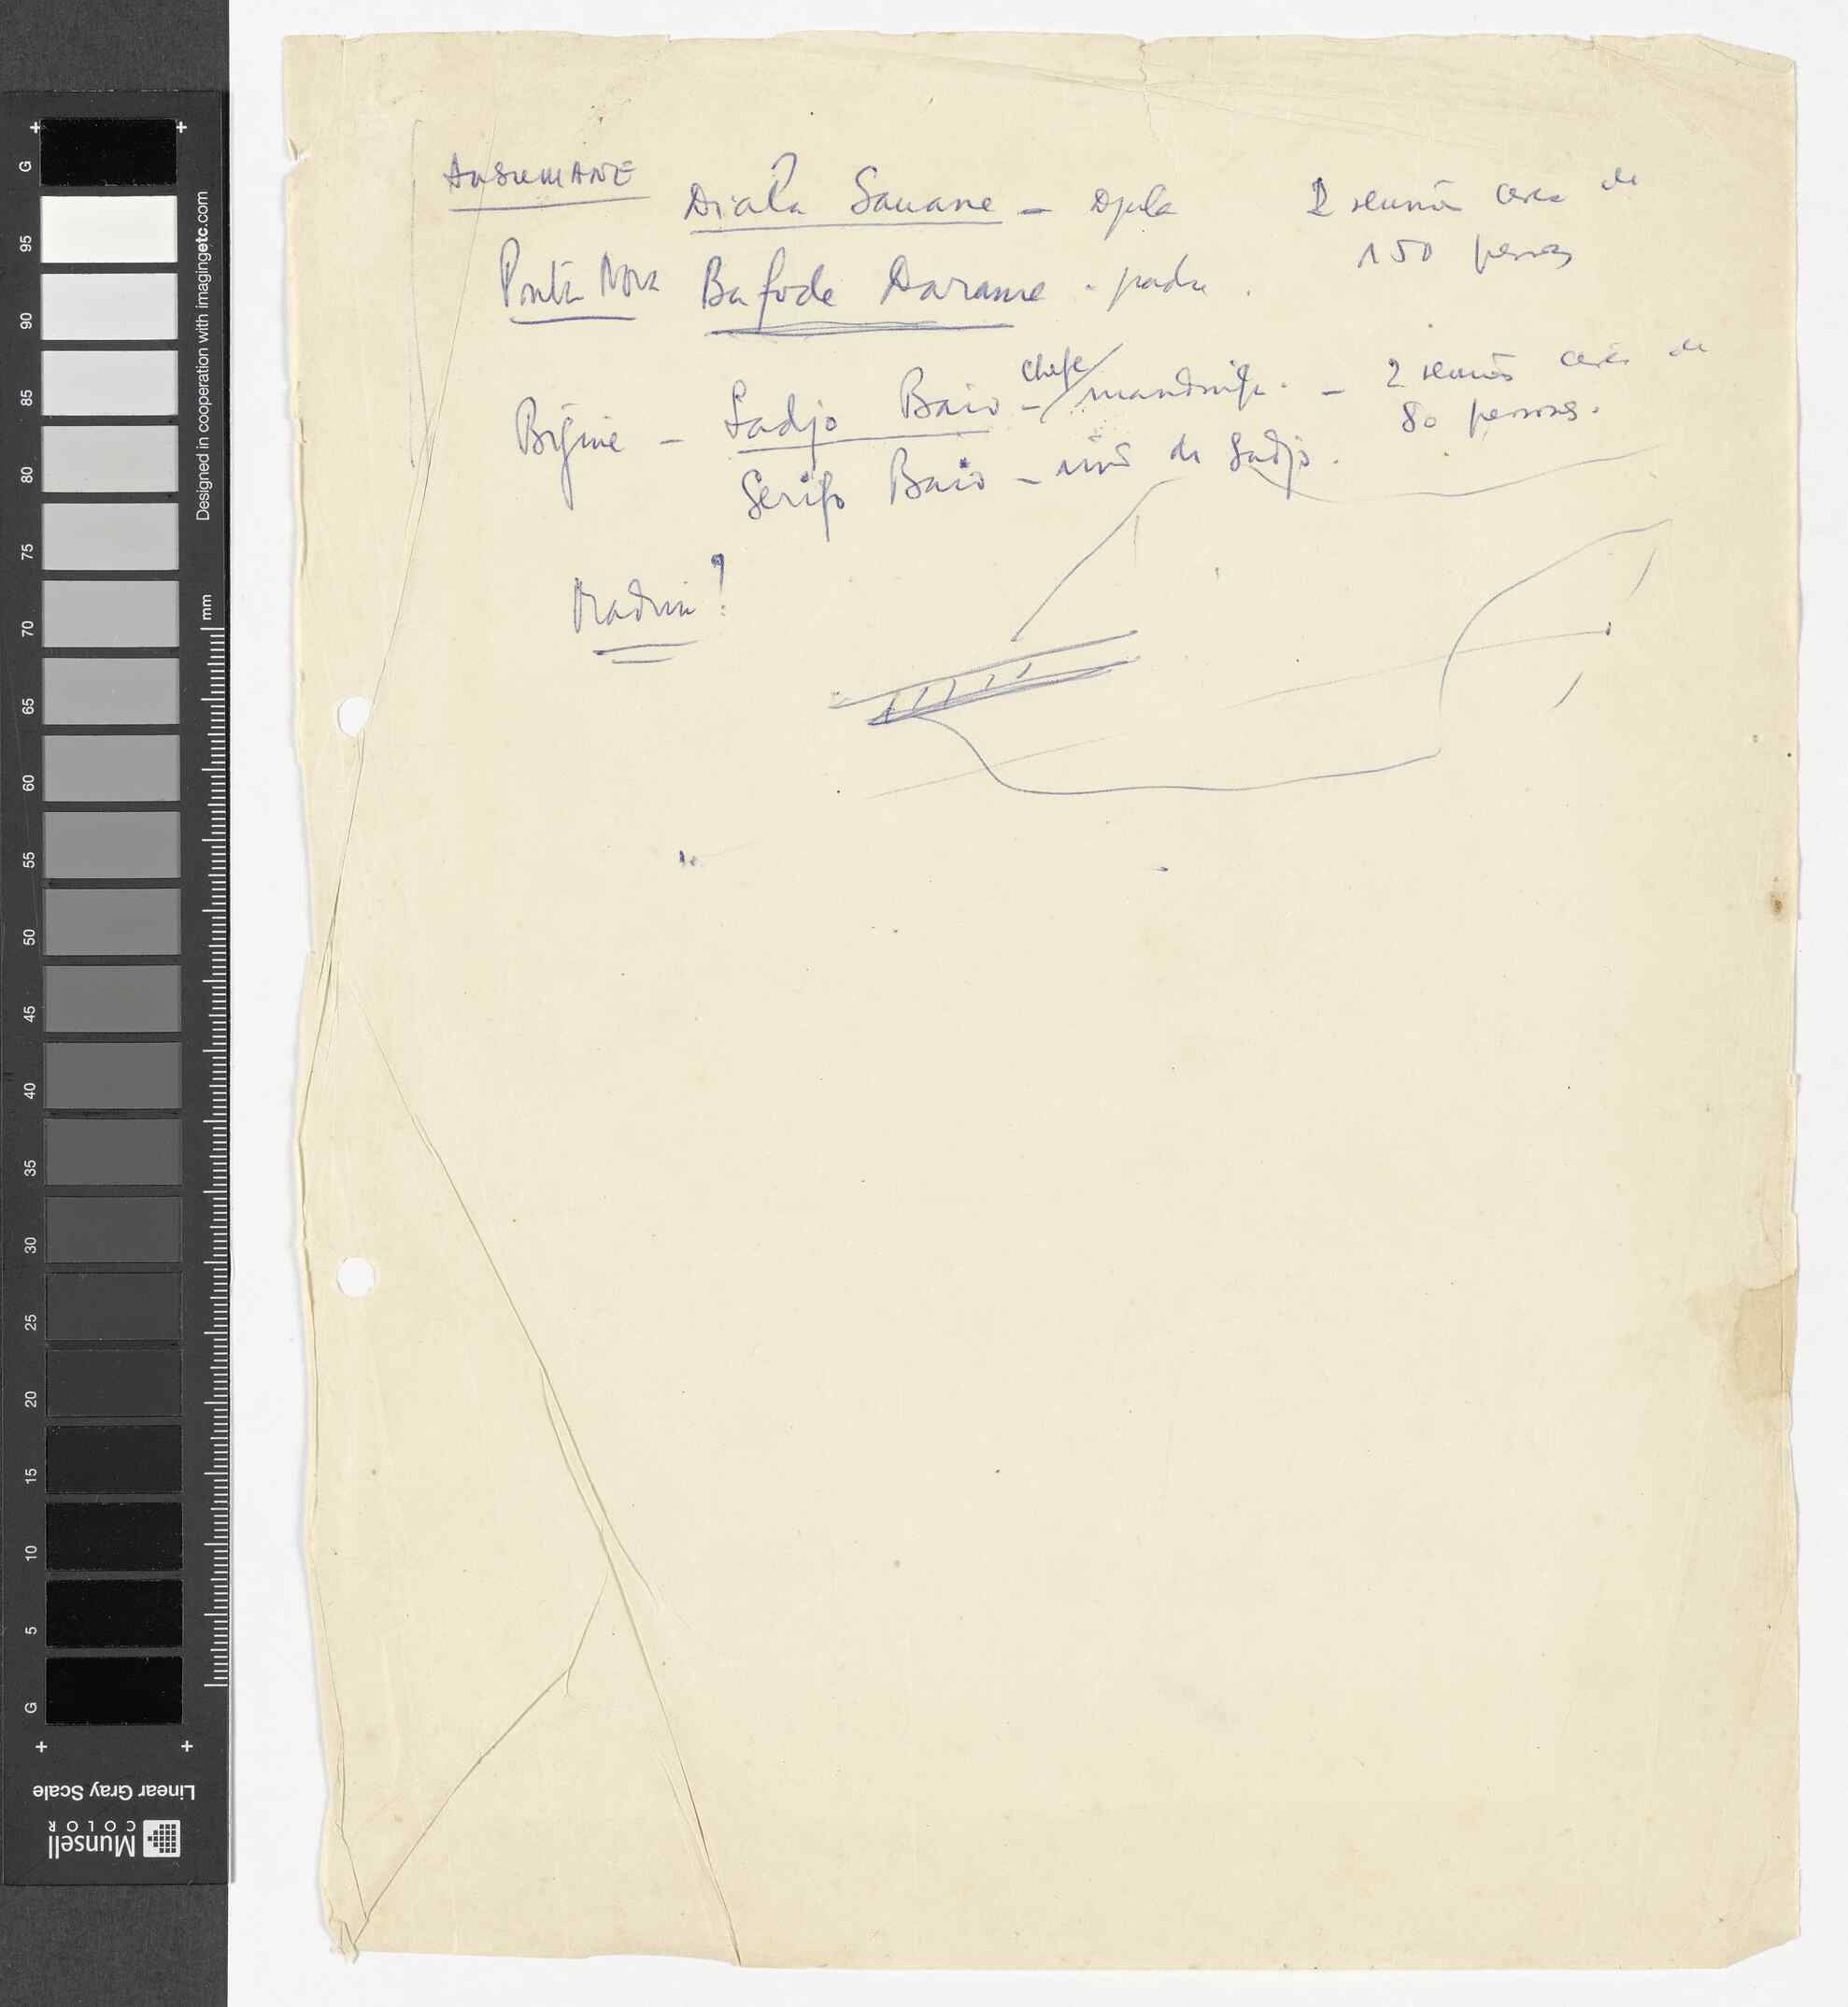 ANSUMANE
Diata Sauane - Djola 2 reuniões cerca de
150 pessoas
Ponta Nova Bafode Darame - padre.
Bijine - Sadjo Baio - chefe mandinga. - 2 reuniões cerca de
80 pessoas.
Serifo Baio - irmão de Sadjo.
?
G
95
90
85
80
75
70
65
60
55
50
45
40
35
30
25
20
15
10
5
G
mm
Designed in cooperation with imagingetc.com
Linear Gray Scale
Munsell
COLOR